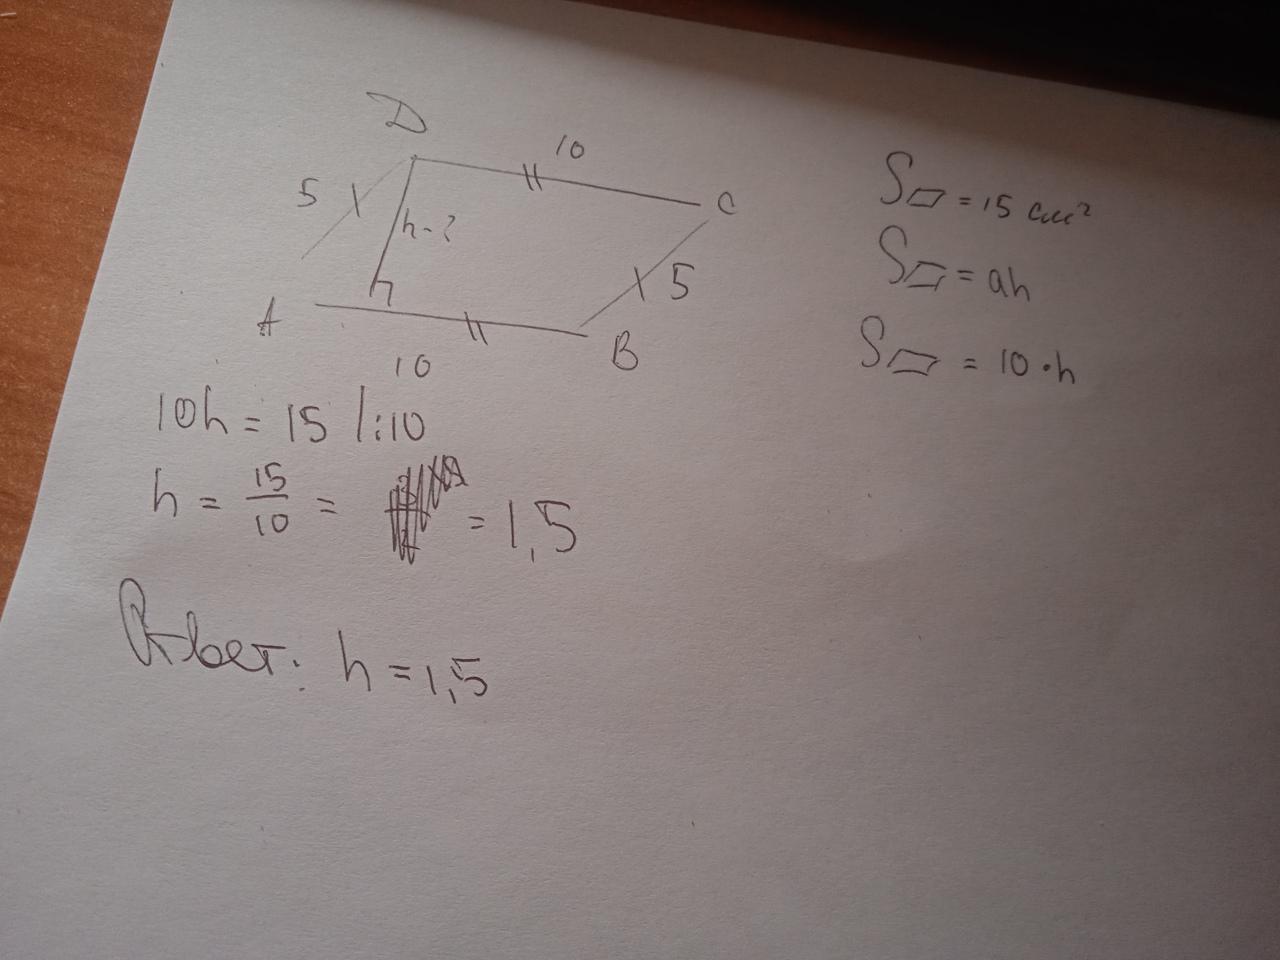 D
10
C
5
h-?
5
A
B
10
S▱ = 15 см²
S▱ = ah
S▱ = 10·h
10h = 15 |:10
h = 15/10 = = 1,5
Ответ: h = 1,5